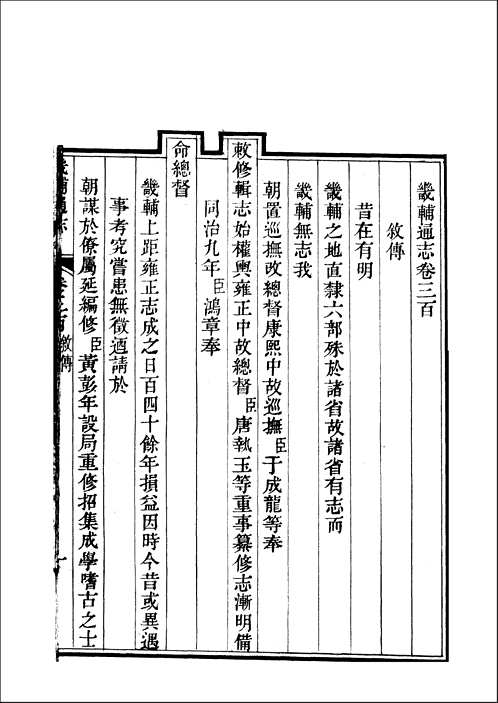 畿輔通志卷三百
敘傳
昔在有明
畿輔之地直隸六部殊於諸省故諸省有志而
畿輔無志我
朝置巡撫改總督康熙中故巡撫臣于成龍等奉
敕修輯志始權輿雍正中故總督臣唐執玉等重事纂修志漸明備
同治九年臣鴻章奉
命總督
畿輔上距雍正志成之日百四十餘年損益因時今昔或異遇
事考究嘗患無徵迺請於
朝謀於僚屬延編修臣黃彭年設局重修招集成學嗜古之士
畿輔通志 敘傳 一